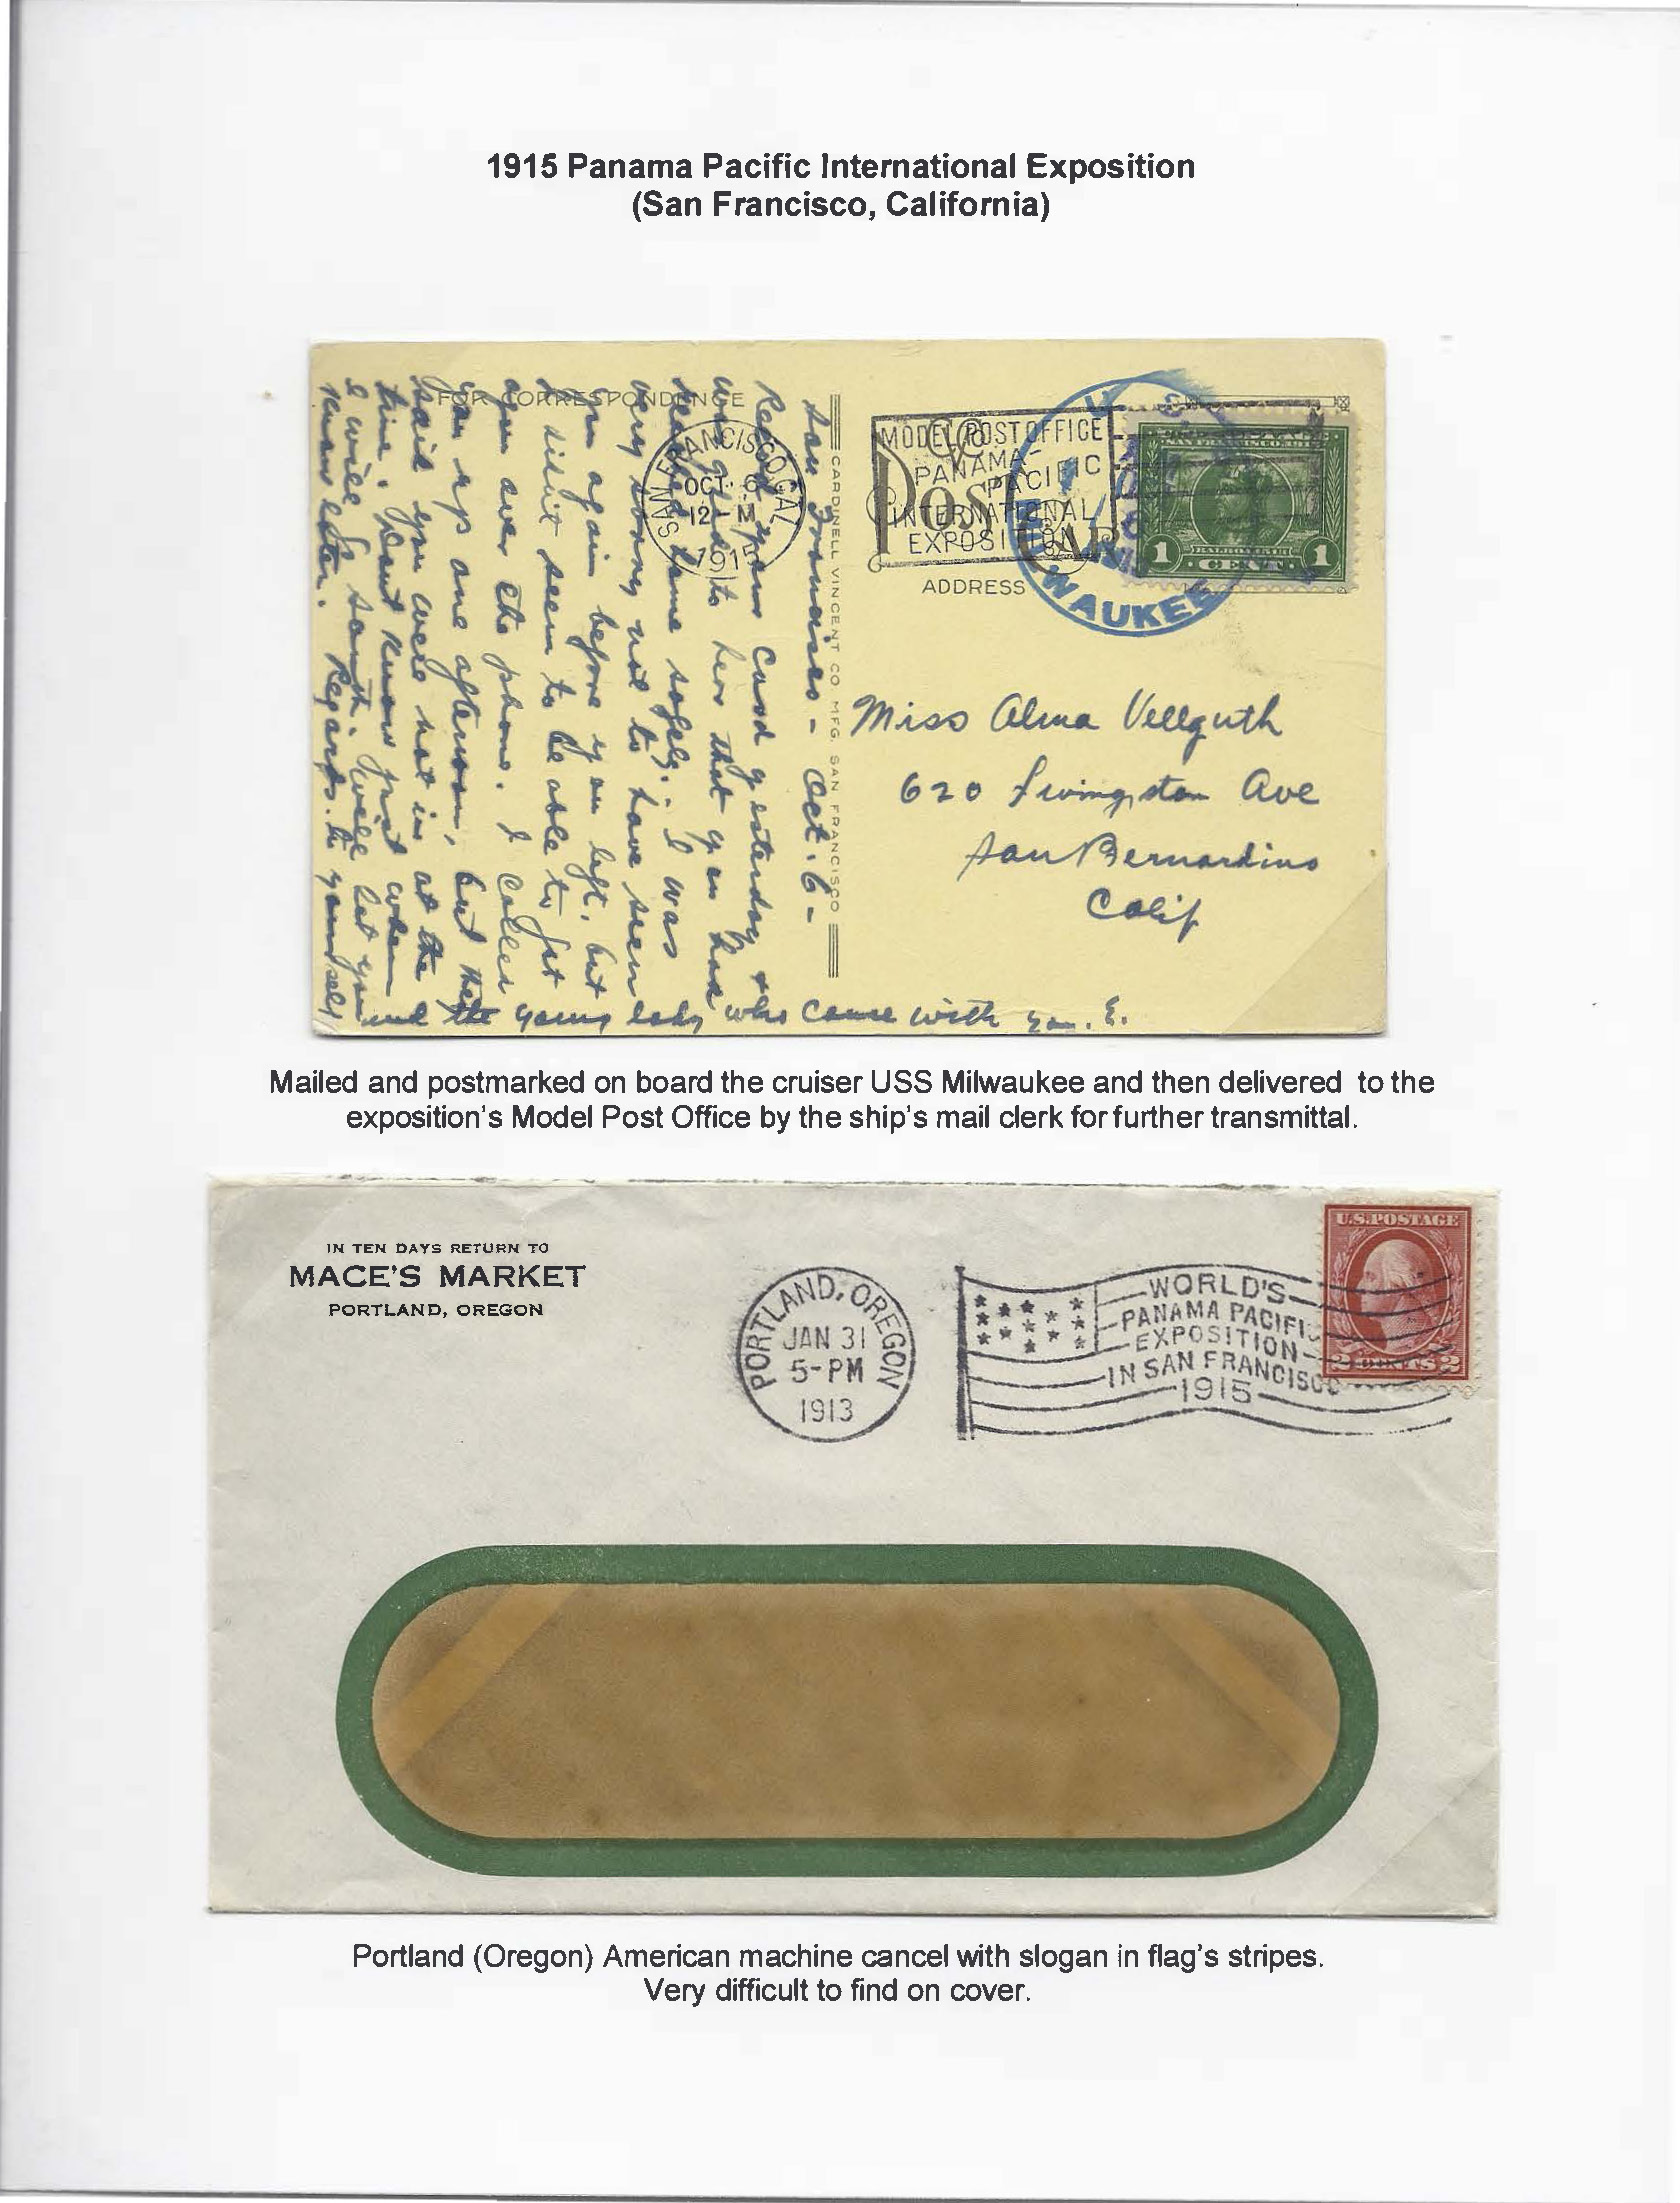 1915 Panama Pacific International Exposition
(San Francisco, California)
FOR CORRESPONDENCE
San Francisco - Oct. 6 -
Recd your card yesterday &
was glad to hear that you had
reached home safely. - I was
very sorry not to have seen
you again before you left, but
I didn't seem to be able to get
you over the phone. I called
you up one afternoon, but they
said you were not in at the
time. Dont know just when
I will go south. Will let you
know later. Regards to yourself
and the young lady who came with you. E.
SAN FRANCISCO, CAL.
OCT 6
12-M
1915
CARDINELL VINCENT CO. MFG. SAN FRANCISCO
MODEL POST OFFICE
PANAMA-
PACIFIC
INTERNATIONAL
EXPOSITION
POST CARD
ADDRESS
U S
MILWAUKEE
1 CENT 1
Miss Alma Vellguth
620 Livingston Ave
San Bernardino
Calif
Mailed and postmarked on board the cruiser USS Milwaukee and then delivered to the
exposition's Model Post Office by the ship's mail clerk for further transmittal.
IN TEN DAYS RETURN TO
MACE'S MARKET
PORTLAND, OREGON
PORTLAND, OREGON
JAN 31
5-PM
1913
WORLD'S
PANAMA PACIFIC
EXPOSITION
IN SAN FRANCISCO
1915
U.S. POSTAGE
2 CENTS 2
Portland (Oregon) American machine cancel with slogan in flag's stripes.
Very difficult to find on cover.